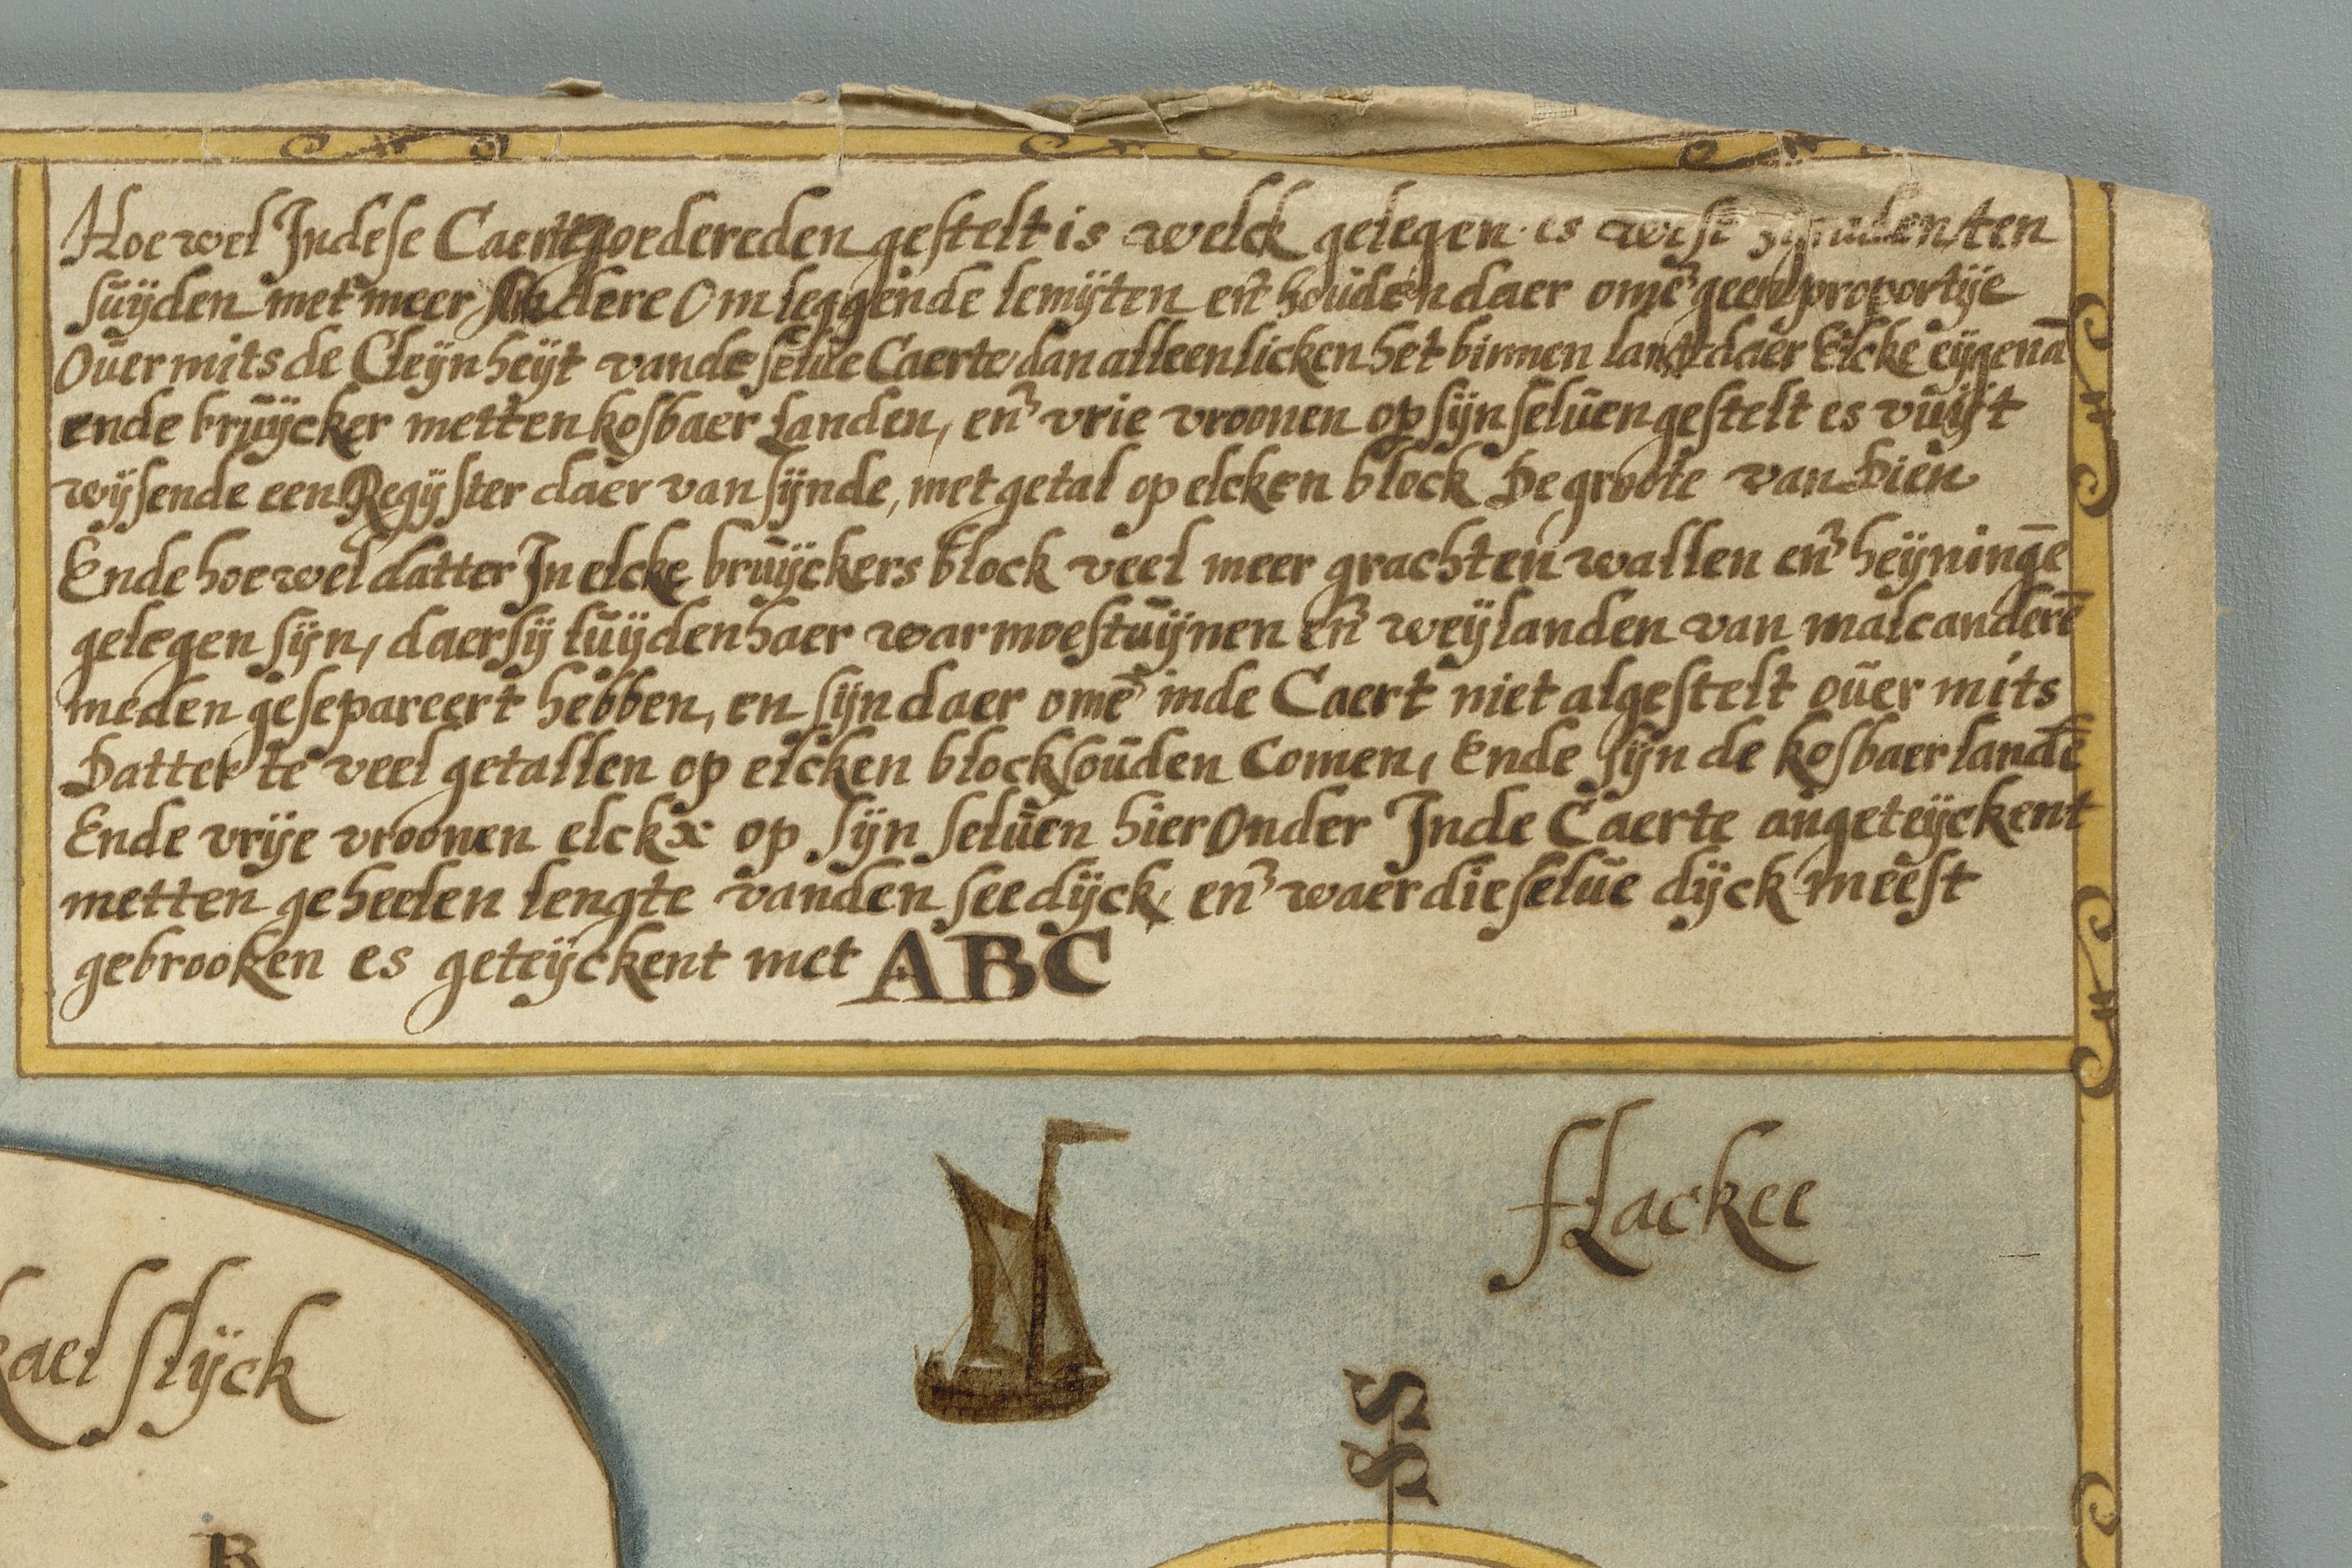 Hoe wel Indese Caerte goedereden gestelt is welck gelegen es west ten
suÿden met meer Andere Omleggende lemÿten en̄ houden daer omē geen proportÿe
Oūermits de Cleÿnheÿt vande selūe Caerte, dan alleenlicken het binnen lant daer Elcke eÿgenā
ende brūÿcker metten kosbaer Landen, en̄ vrie vroonen op sÿn selūen gestelt es vūÿt
wÿsende een Regÿster daer van sÿnde, met getal op elcken block De groote van Dien
Ende hoe wel datter In elcke brūÿckers block veel meer grachten wallen en̄ heÿningē
gelegen sÿn, daer sÿ lūÿden haer warmoestūÿnen en̄ weÿlanden van malcanderē
meden gesepareert hebben, en sÿn daer omē inde Caert niet al gestelt oūer mits
Datter te veel getallen op elcken block soūden Comen, Ende sÿn de kosbaer landē
Ende vrÿe vroonen elckx op sÿn selūen hier Onder Inde Caerte angeteÿckent
metten geheelen lengte vanden seedÿck, en̄ waer die selūe dÿck meest
gebrooken es geteÿckent met ABC
flackee
kael slÿck
S
S
B